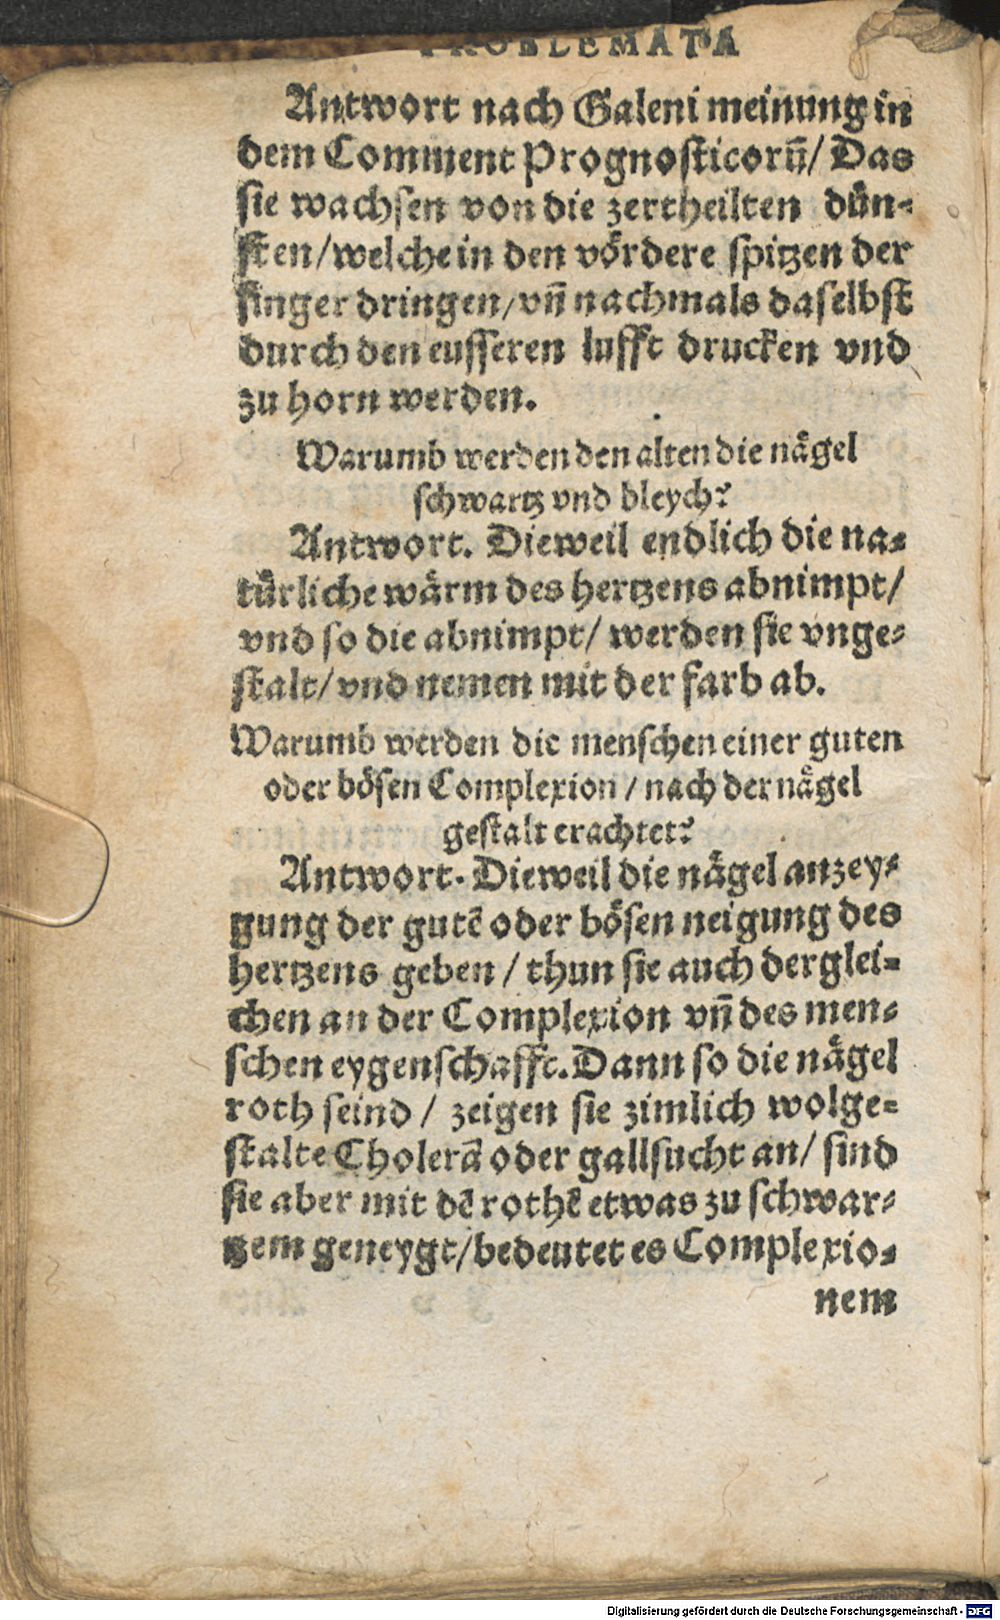 PROBLEMATA
Antwort nach Galeni meinung in
dem Comment Prognosticorun̄/ Das
sie wachsen von die zertheilten dün⸗
sten/welche in den vördere spitzen der
finger dringen/vn̄ nachmals daselbst
durch den eusseren lufft drucken vnd
zu horn werden.
Warumb werden den alten die nägel
schwartz vnd bleych?
Antwort. Dieweil endlich die na⸗
türliche wärm des hertzens abnimpt/
vnd so die abnimpt/ werden sie vnge⸗
stalt/vnd nemen mit der farb ab.
Warumb werden die menschen einer guten
oder bösen Complexion / nach der nägel
gestalt erachtet?
Antwort. Dieweil die nägel anzey⸗
gung der gutē oder bösen neigung des
hertzens geben / thun sie auch derglei⸗
chen an der Complexion vn̄ des men⸗
schen eygenschafft. Dann so die nägel
roth seind / zeigen sie zimlich wolge⸗
stalte Cholerā oder gallsucht an/ sind
sie aber mit dē rothē etwas zu schwar⸗
tzem geneygt/bedeutet es Complexio⸗
nem
Digitalisierung gefördert durch die Deutsche Forschungsgemeinschaft - DFG